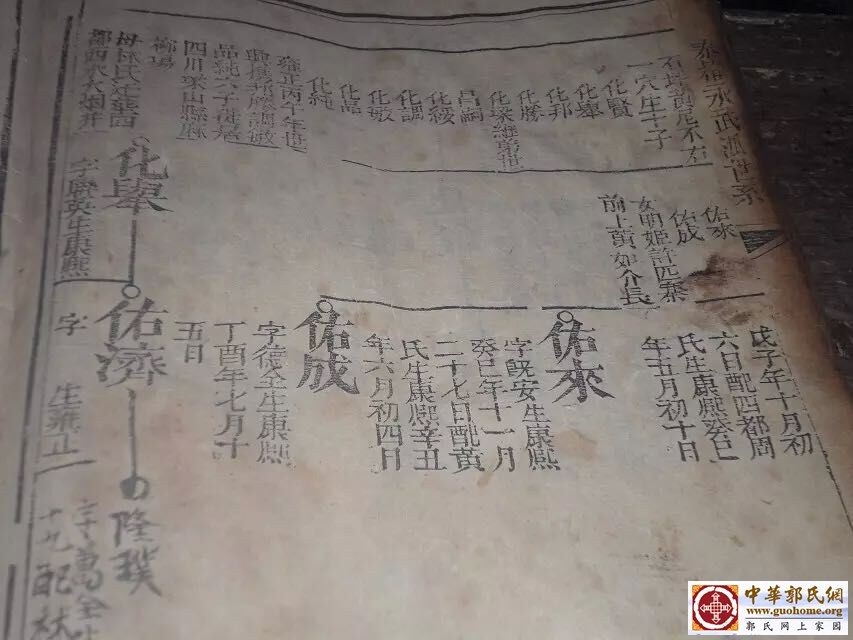 泰和永武派世系
一穴生十子
化賢
化舉
化邦
化勝
化梁繼第世
昌嗣
化綏
化調
化敏
化品
化純
雍正丙午年世
品純六子徙居
四川梁山縣麻
柳場
佑來
佑成
女明姬許匹蔡
前上黃如介長
化舉
字聯英生康熙
戊子年十月初
六日配四都周
氏生康熙癸巳
年五月初十日
佑來
字旣安生康熙
癸巳年十一月
二十七日配黃
氏生康熙辛丑
年六月初四日
佑成
字德全生康熙
丁酉年七月十
五日
佑濟
字
生雍正
隆璞
中華郭氏網
www.guohome.org
郭氏网上家园